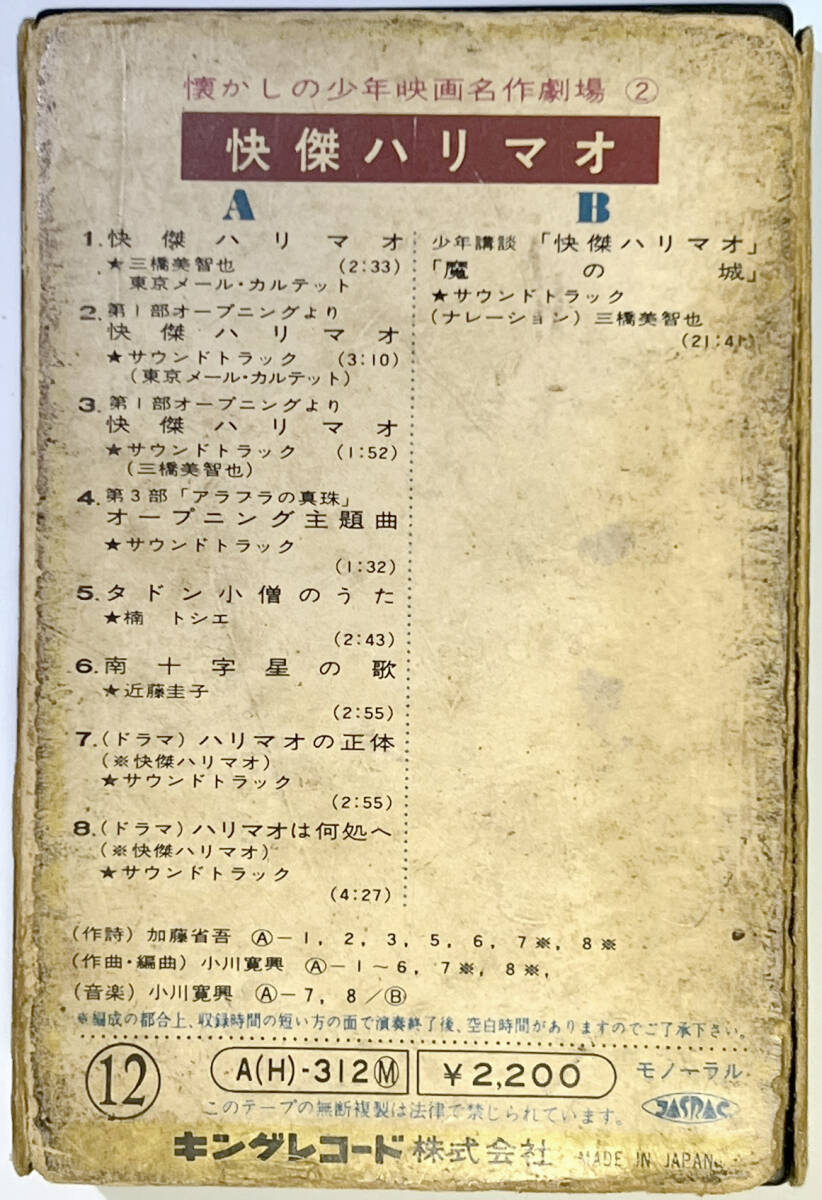 懐かしの少年映画名作劇場 ②
快傑ハリマオ
A
1. 快傑ハリマオ
★三橋美智也 (2:33)
東京メール・カルテット
2. 第1部オープニングより
快傑ハリマオ
★サウンドトラック (3:10)
(東京メール・カルテット)
3. 第1部オープニングより
快傑ハリマオ
★サウンドトラック (1:52)
(三橋美智也)
4. 第3部「アラフラの真珠」
オープニング主題曲
★サウンドトラック
(1:32)
5. タドン小僧のうた
★楠 トシエ
(2:43)
6. 南十字星の歌
★近藤圭子
(2:55)
7. (ドラマ)ハリマオの正体
(※快傑ハリマオ)
★サウンドトラック
(2:55)
8. (ドラマ)ハリマオは何処へ
(※快傑ハリマオ)
★サウンドトラック
(4:27)
B
少年講談 「快傑ハリマオ」
「魔の城」
★サウンドトラック
(ナレーション) 三橋美智也
(21:41)
(作詩) 加藤省吾 Ⓐ-1, 2, 3, 5, 6, 7※, 8※
(作曲・編曲) 小川寛興 Ⓐ-1~6, 7※, 8※,
(音楽) 小川寛興 Ⓐ-7, 8/Ⓑ
※編成の都合上、収録時間の短い方の面で演奏終了後、空白時間がありますのでご了承下さい。
⑫ A(H)-312Ⓜ ¥2,200 モノーラル
JASRAC
このテープの無断複製は法律で禁じられています。
キングレコード株式会社 MADE IN JAPAN